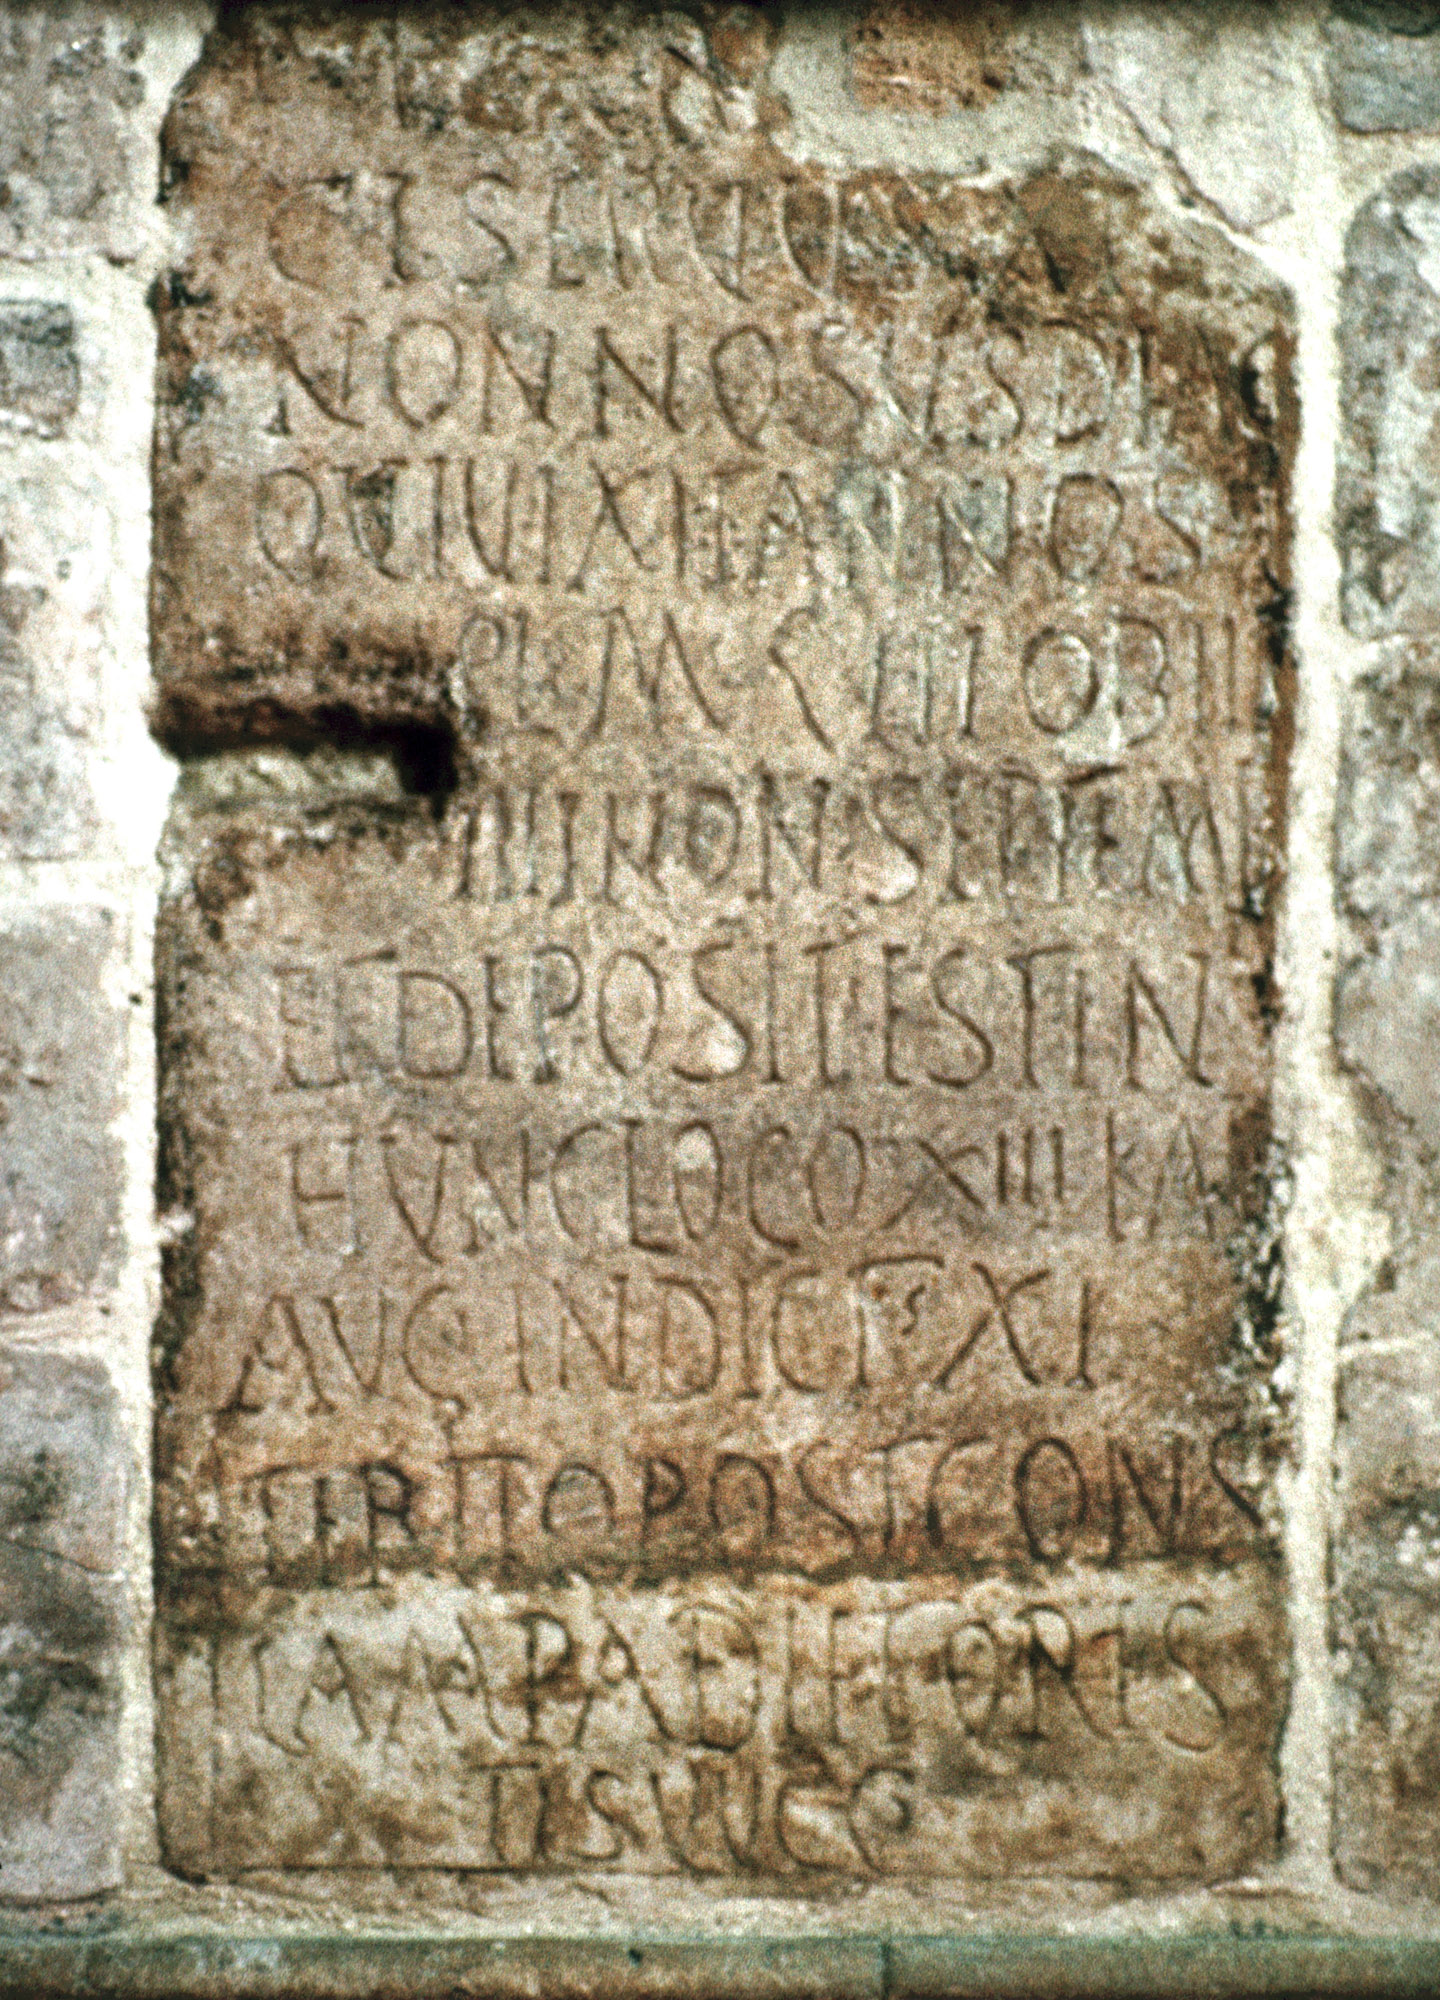 CIT SERVVS
NONNOSVS DIAC
QVI VIXIT ANNOS
PLM CIII OBIIT
IIII NON SEPTEMB
ET DEPOSIT EST IN
HVNC LOCO XIII KA
AVG INDICT XI
TERTIO POST CONS
LAMPADI ET ORES
TIS VV CC